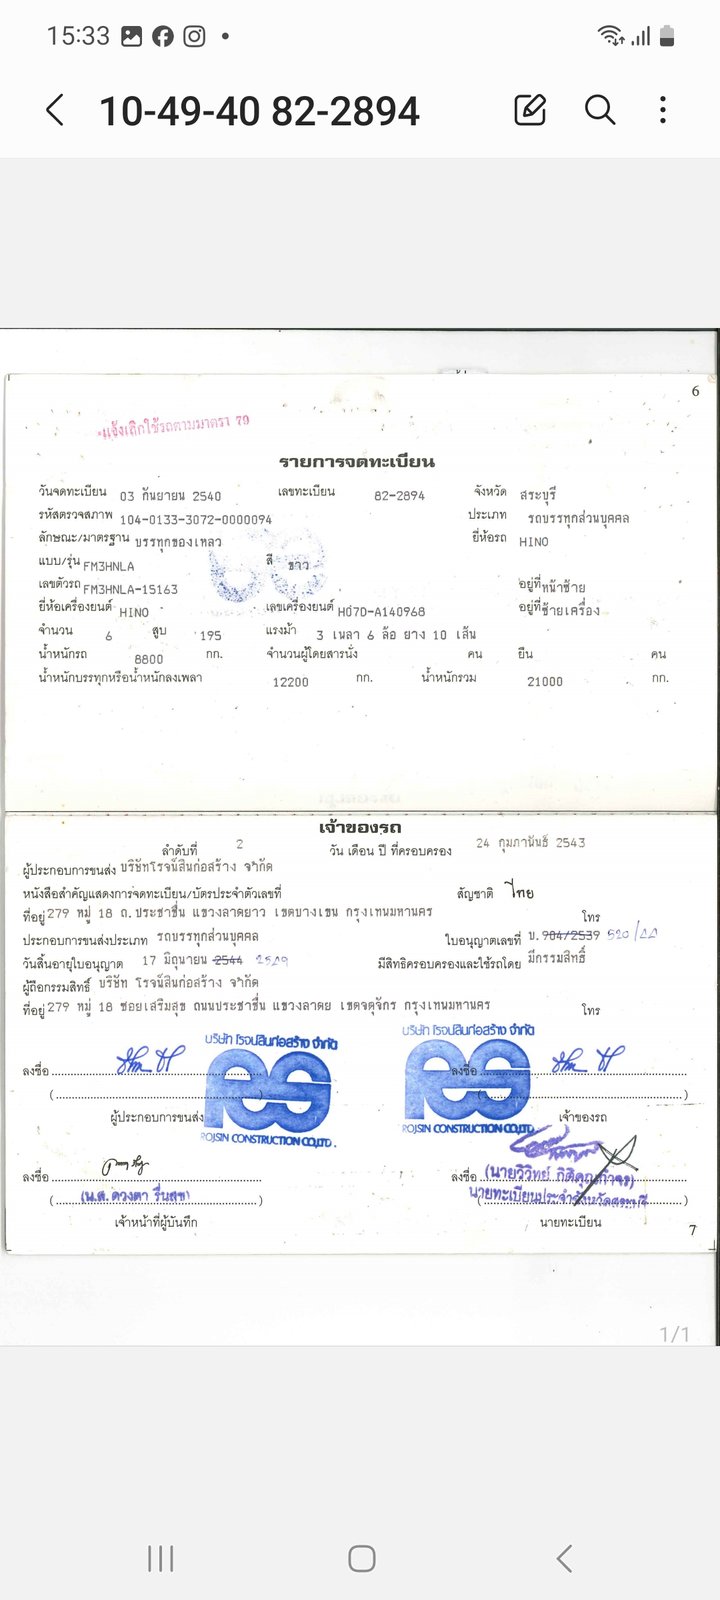 15:33
10-49-40 82-2894
6
แจ้งเลิกใช้รถตามมาตรา 79
รายการจดทะเบียน
วันจดทะเบียน 03 กันยายน 2540 เลขทะเบียน 82-2894 จังหวัด สระบุรี
รหัสตรวจสภาพ 104-0133-3072-0000094 ประเภท รถบรรทุกส่วนบุคคล
ลักษณะ/มาตรฐาน บรรทุกของเหลว ยี่ห้อรถ HINO
แบบ/รุ่น FM3HNLA สี ขาว
เลขตัวรถ FM3HNLA-15163 อยู่ที่ หน้าซ้าย
ยี่ห้อเครื่องยนต์ HINO เลขเครื่องยนต์ H07D-A140968 อยู่ที่ ซ้ายเครื่อง
จำนวน 6 สูบ 195 แรงม้า 3 เพลา 6 ล้อ ยาง 10 เส้น
น้ำหนักรถ 8800 กก. จำนวนผู้โดยสารนั่ง คน ยืน คน
น้ำหนักบรรทุกหรือน้ำหนักลงเพลา 12200 กก. น้ำหนักรวม 21000 กก.
เจ้าของรถ
ลำดับที่ 2 วัน เดือน ปี ที่ครอบครอง 24 กุมภาพันธ์ 2543
ผู้ประกอบการขนส่ง บริษัทโรจน์สินก่อสร้าง จำกัด
หนังสือสำคัญแสดงการจดทะเบียน/บัตรประจำตัวเลขที่ สัญชาติ ไทย
ที่อยู่ 279 หมู่ 18 ถ.ประชาชื่น แขวงลาดยาว เขตบางเขน กรุงเทพมหานคร โทร
ประกอบการขนส่งประเภท รถบรรทุกส่วนบุคคล ใบอนุญาตเลขที่ บ.904/2539 520/44
วันสิ้นอายุใบอนุญาต 17 มิถุนายน 2544 2549 มีสิทธิครอบครองและใช้รถโดย มีกรรมสิทธิ์
ผู้ถือกรรมสิทธิ์ บริษัท โรจน์สินก่อสร้าง จำกัด
ที่อยู่ 279 หมู่ 18 ซอยเสริมสุข ถนนประชาชื่น แขวงลาดย เขตจตุจักร กรุงเทพมหานคร โทร
บริษัท โรจน์สินก่อสร้าง จำกัด บริษัท โรจน์สินก่อสร้าง จำกัด
ลงชื่อ ลงชื่อ
ผู้ประกอบการขนส่ง เจ้าของรถ
ROJSIN CONSTRUCTION CO.,LTD. ROJSIN CONSTRUCTION CO.,LTD.
ลงชื่อ ลงชื่อ
(น.ส.ดวงตา รื่นสุข) (นายวิวิทย์ กิติคุณกำจร)
นายทะเบียนประจำจังหวัดสระบุรี
เจ้าหน้าที่ผู้บันทึก นายทะเบียน
7
1/1